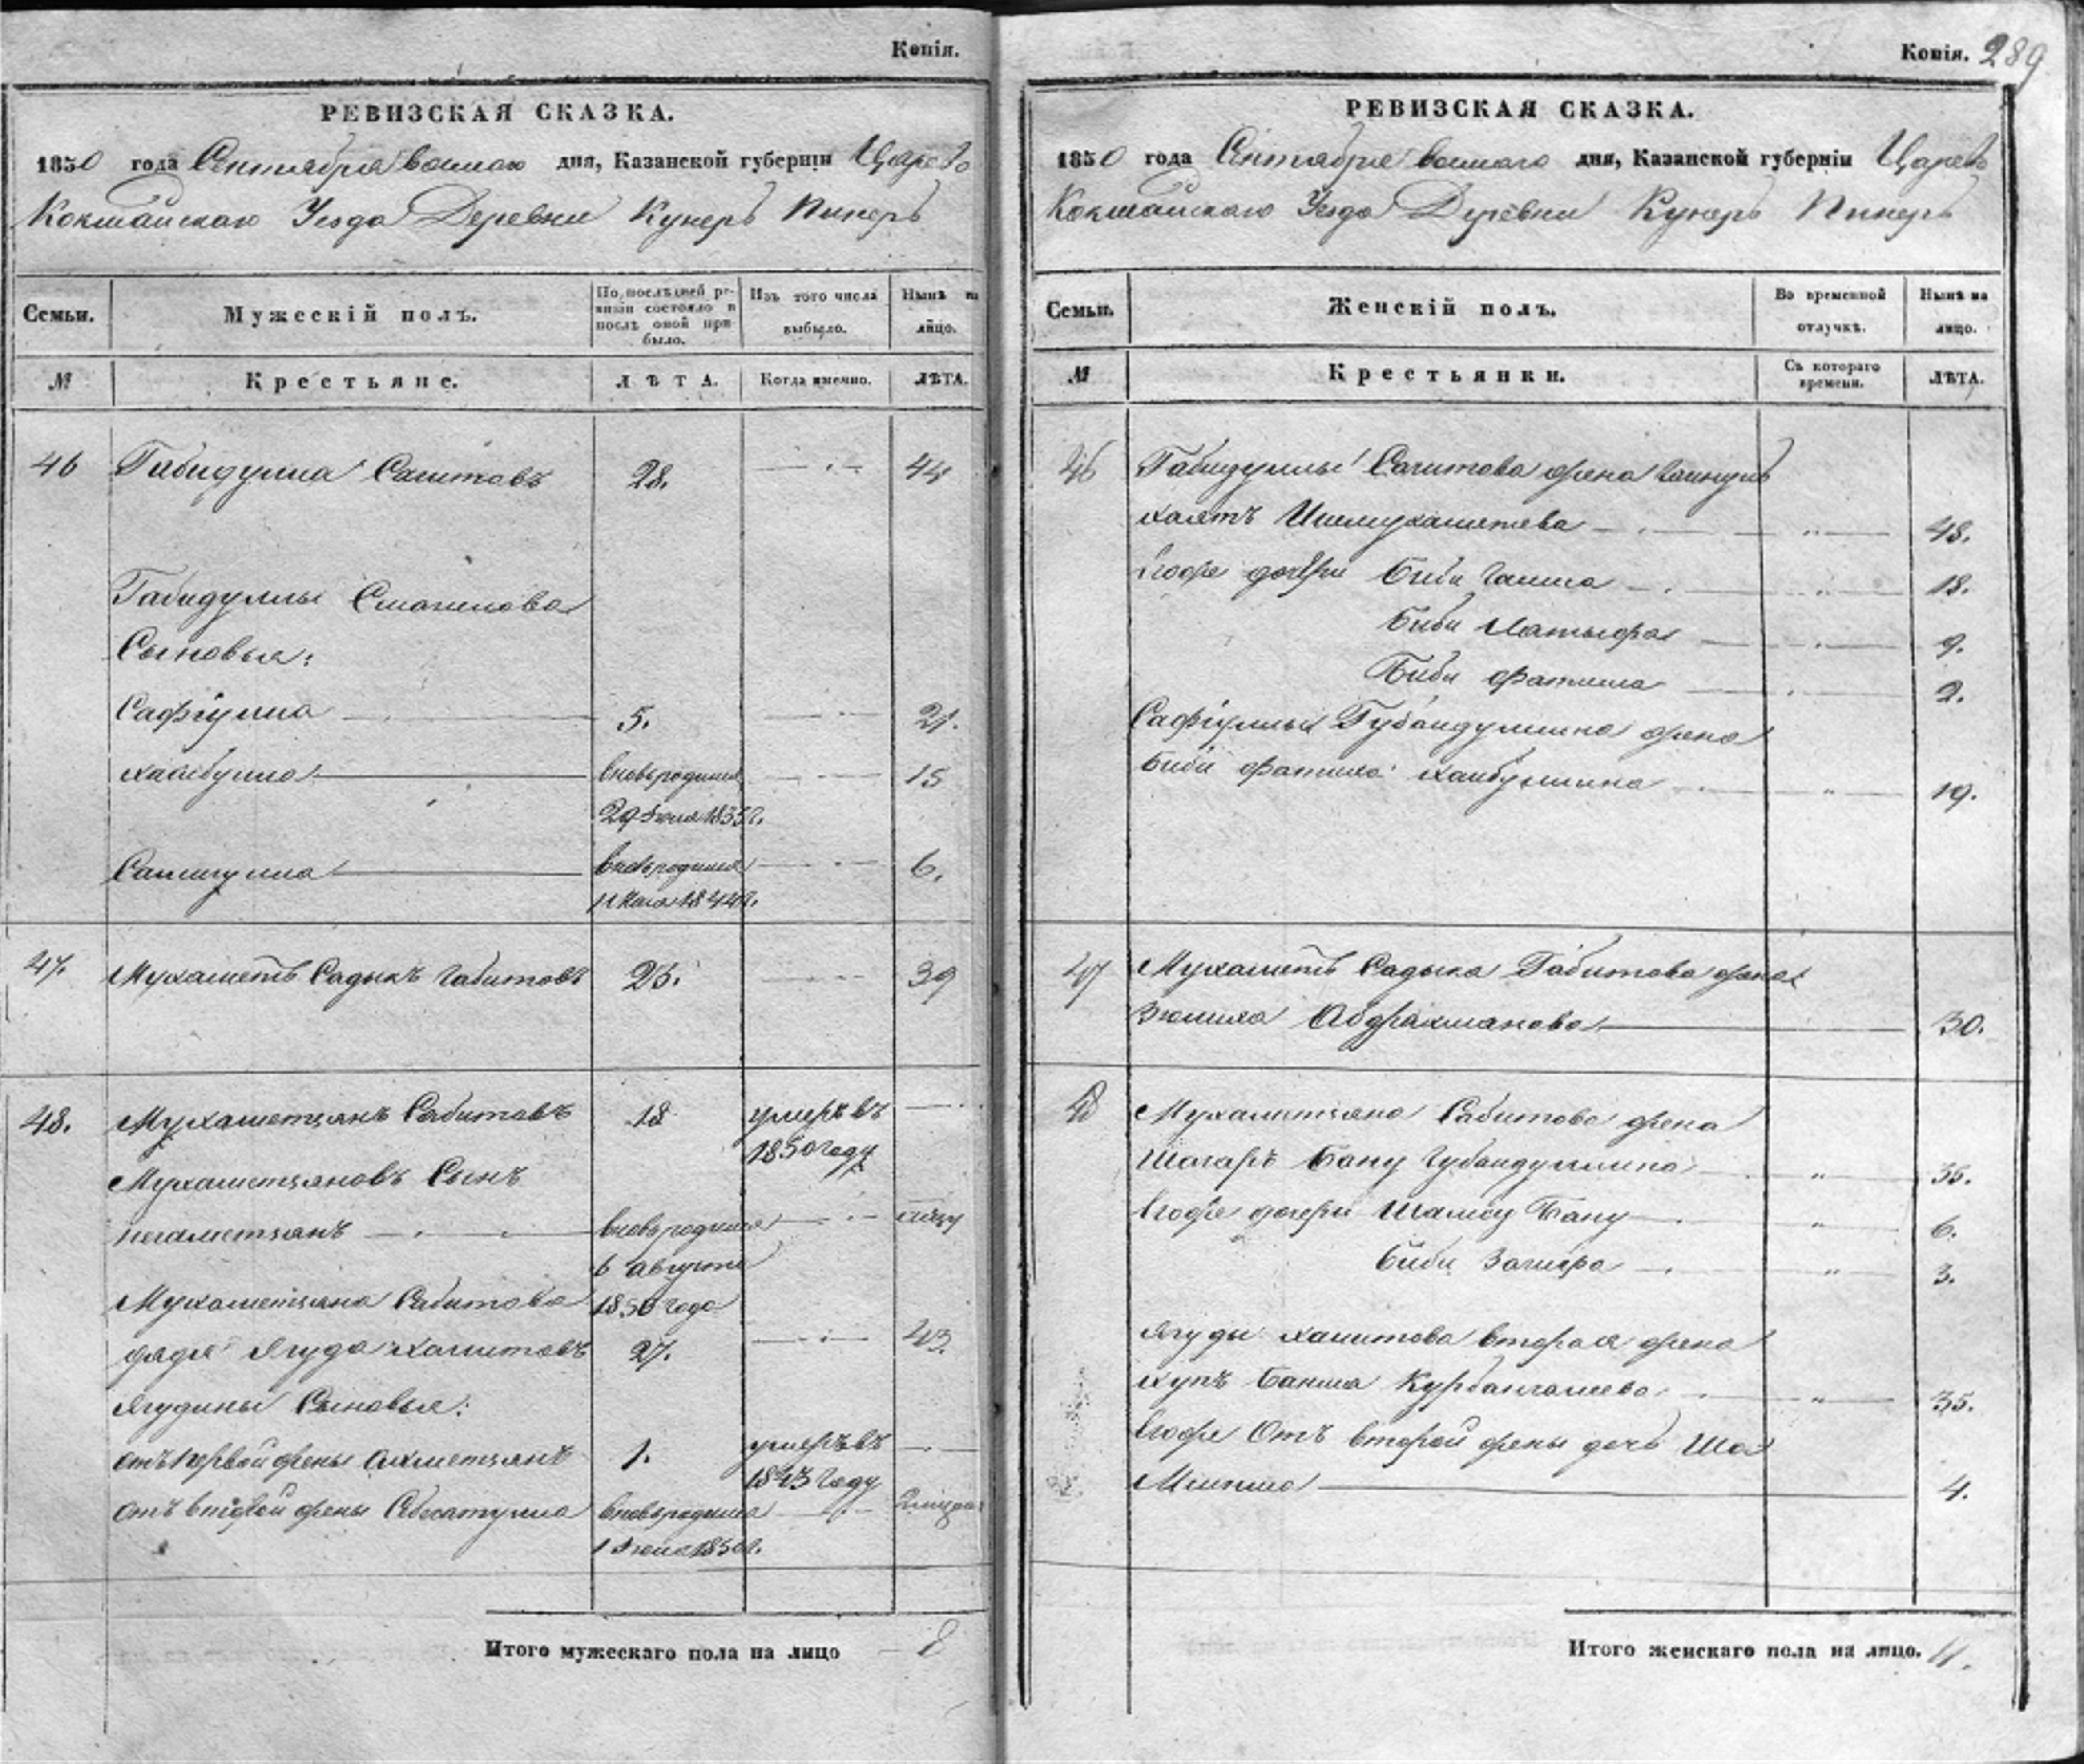 Копія.
РЕВИЗСКАЯ СКАЗКА.
1850 года Сентября дня, Казанской губерніи Царево
Кокшайскаго Уезда Деревни Кунеръ Пинеръ
Семьи. Мужескій полъ. По послѣдней ревизіи состояло и послѣ оной прибыло. Изъ того числа выбыло. Нынѣ на лицо.
№ Крестьяне. ЛѢТА. Когда именно. ЛѢТА.
46 Габидулла Сагитовъ 28. 44
Габидуллы Смагилова
Сыновья:
Сафіулла 5. 21.
Хабибулла вновьродился 15
29 Іюля 1835 г.
Салигулла вновьродился 6.
11 Мая 1844 г.
47. Мухаметъ Садыкъ Габитовъ 23. 39
48. Мухаметзянъ Сабитовъ 18 умеръ въ
1850 году
Мухаметзяновъ Сынъ
Негаметзянъ вновьродился
6 августа
Мухаметзяна Сабитова 1850 года
дядя Ягуда Хамитовъ 27. 43.
Ягудины Сыновья:
отъ первой жены Ахметзянъ 1. умеръ въ
1843 году
отъ второй жены вновьродился
1 Іюля 1850 г.
Итого мужескаго пола на лицо 8
Копія. 289
РЕВИЗСКАЯ СКАЗКА.
1850 года Сентября дня, Казанской губерніи Царево
Кокшайскаго Уезда Деревни Кунеръ Пинеръ
Семьи. Женскій полъ. Во временной отлучкѣ. Нынѣ на лицо.
№ Крестьянки. Съ котораго времени. ЛѢТА.
46 Габидуллы Сагитова жена
хаятъ Ишмухаметева 48.
Егоже дочери Биби Гайша 18.
Биби 9.
Биби Фатима 2.
Сафіуллы Губайдуллина жена
Биби Фатиха Хайбуллина 19.
47 Мухаметъ Садыка Габитова жена
Зюлиха Абдрахманова 30.
48 Мухаметзяна Сабитова жена
Шагаръ Бану Губайдуллина 35.
Егоже дочери Шамсу Бану 6.
Биби Загира 3.
Ягуды Хамитова вторая жена
Хупъ Банша Курбангалеева 35.
Егоже Отъ второй жены дочь Ша
4.
Итого женскаго пола на лицо. 11.